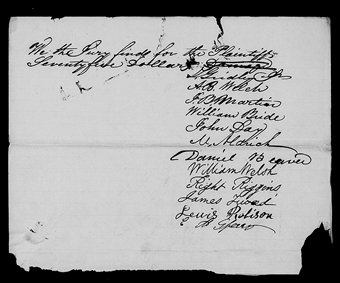 We the Jury finds for the Plaintiff
Seventyfive Dollars
A.B. Welch
J.B. Martin
William Bride
John Day
N. Aldrich
Daniel Beaver
William Welsh
Right Riggins
James Tweed
Lewis Robison